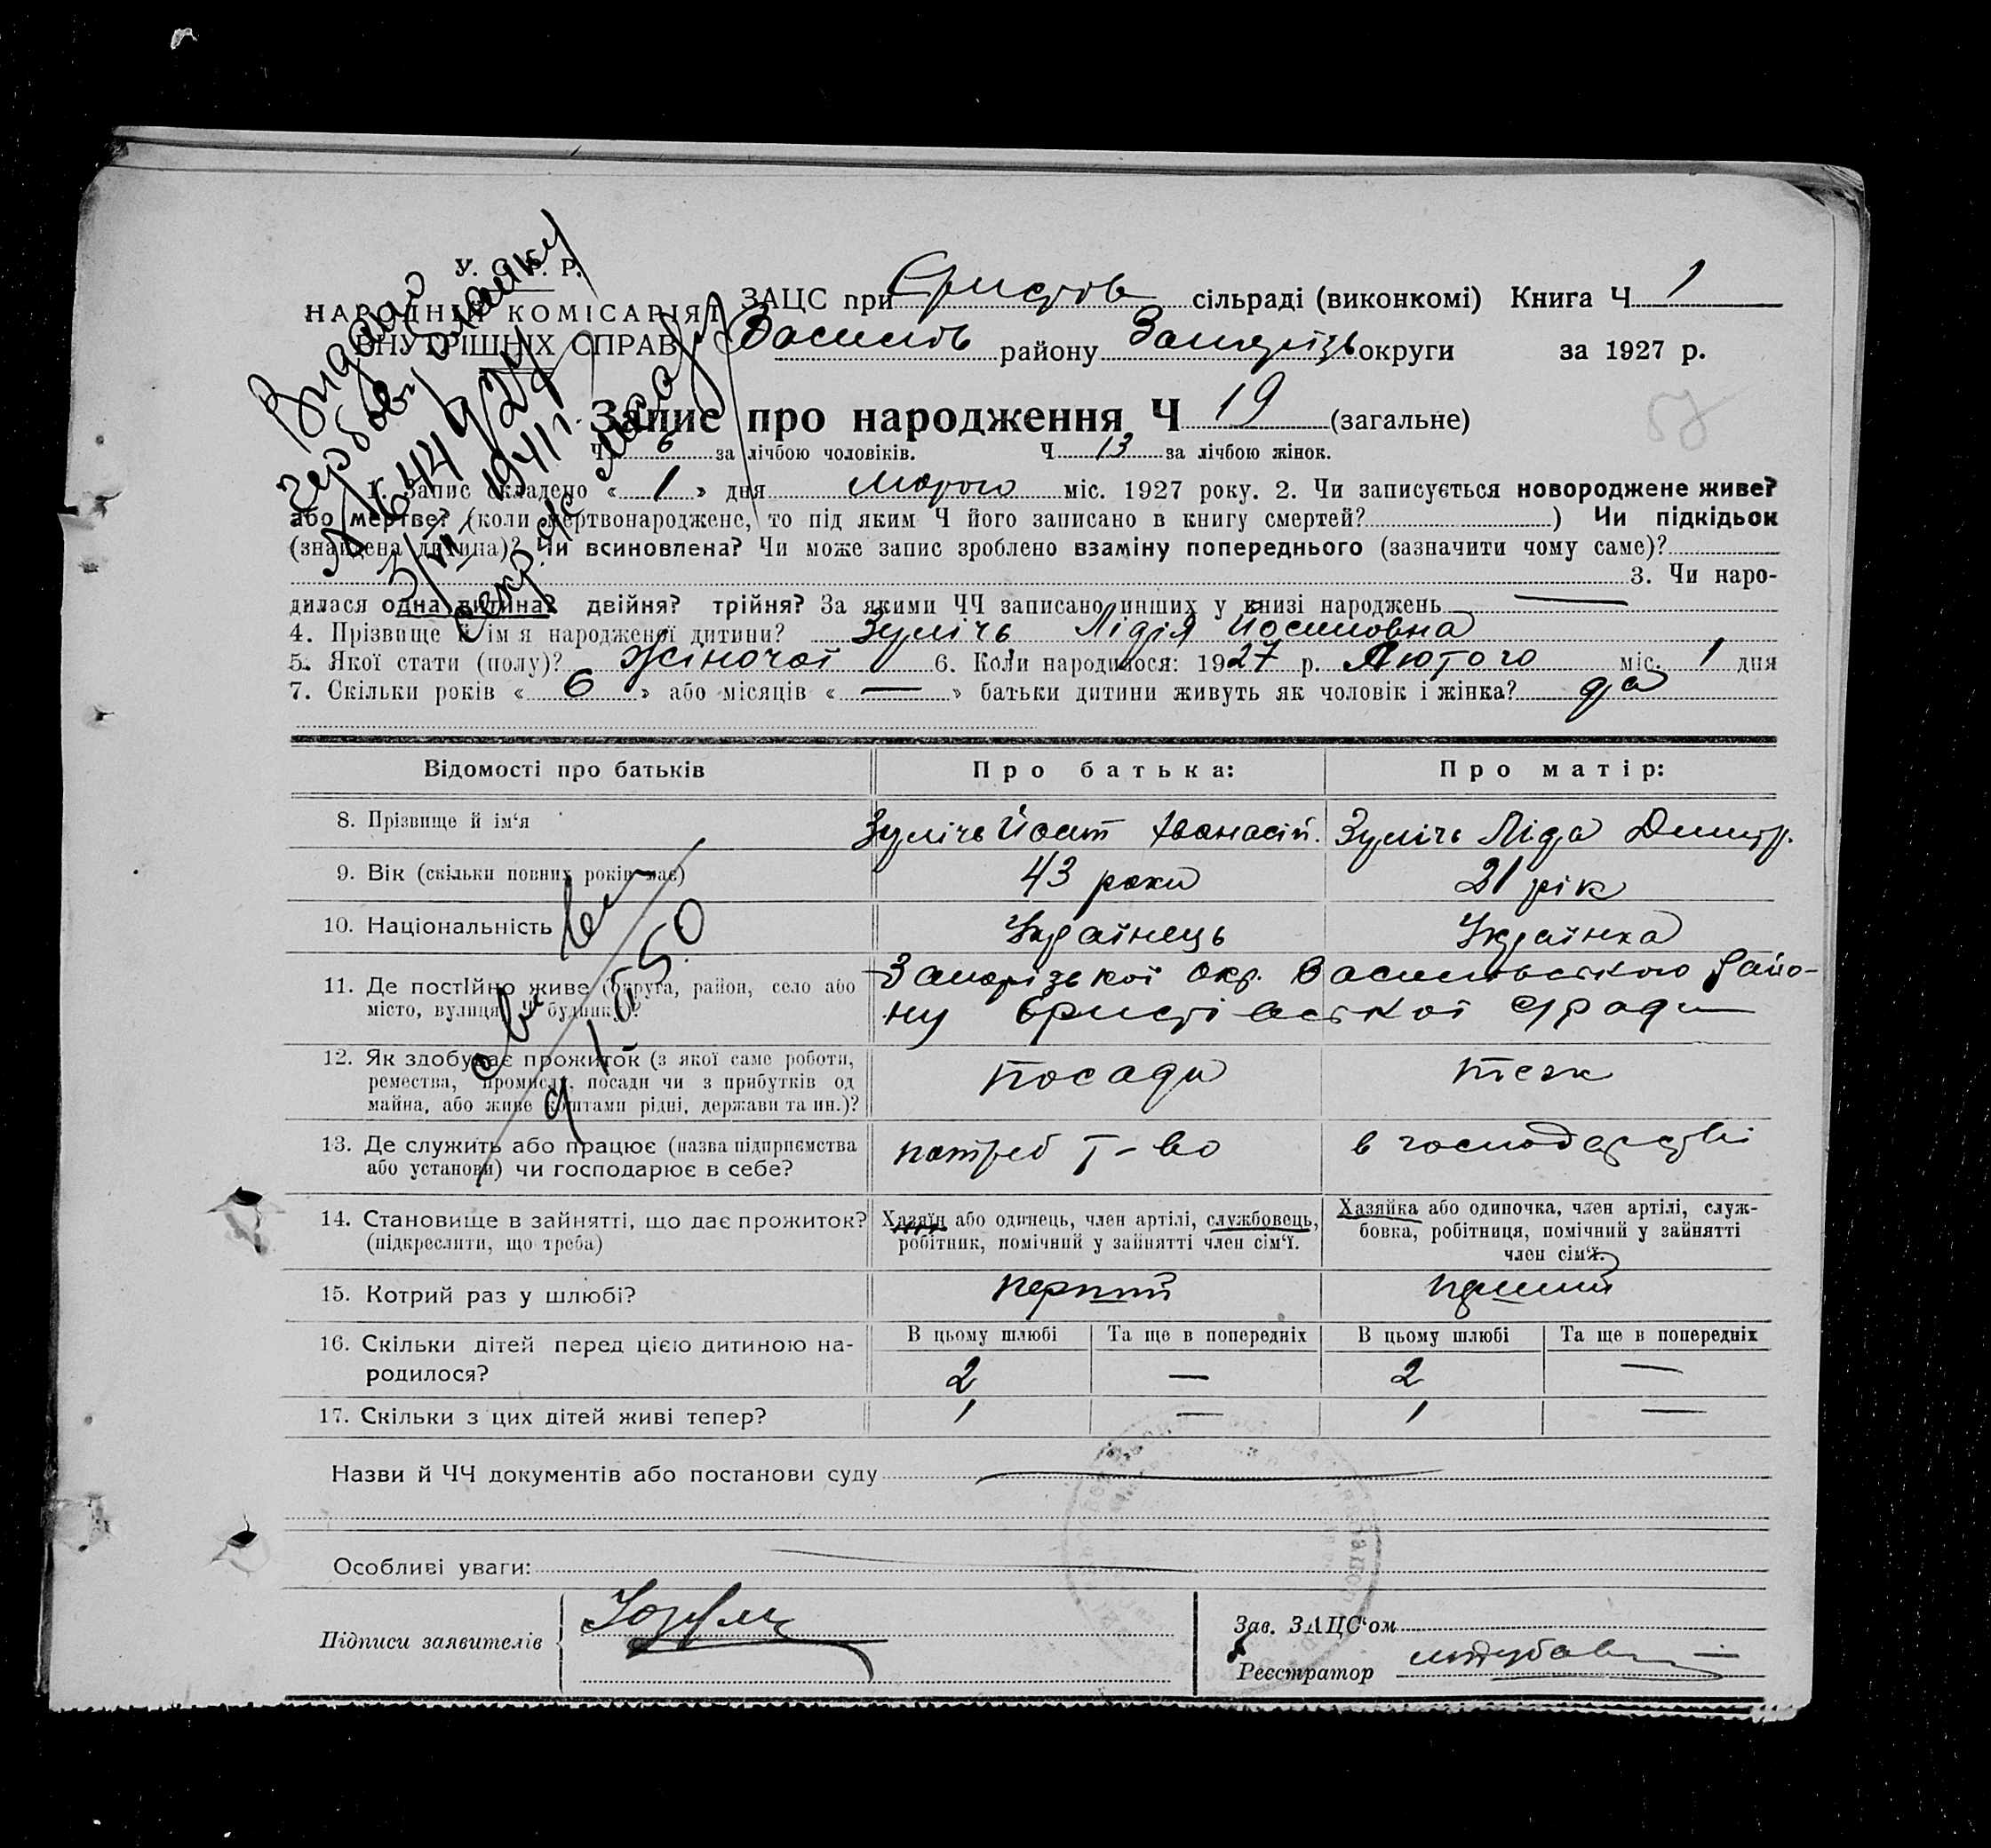 У. С. Р. Р.
НАРОДНІЙ КОМІСАРІЯТ
ВНУТРІШНІХ СПРАВ
Видано
гербову
№ 644924
3/VI 1941 г.
ЗАЦС при Єристов сільраді (виконкомі) Книга Ч. 1
Василів району Запорізь округи за 1927 р.
58
Запис про народження Ч 19 (загальне)
Ч. 6 за лічбою чоловіків. Ч. 13 за лічбою жінок.
1. Запис складено « 1 » дня Марта міс. 1927 року. 2. Чи записується новороджене живе?
або мертве? (коли мертвонароджене, то під яким Ч його записано в книгу смертей? ) Чи підкідьок
(знайдена дитина)? Чи всиновлена? Чи може запис зроблено взаміну попереднього (зазначити чому саме)?
3. Чи наро-
дилася одна дитина? двійня? трійня? За якими ЧЧ записано инших у книзі народжень —
4. Прізвище й ім'я народженої дитини? Зуліч Лідія Йосиповна
5. Якої стати (полу)? Жіночої 6. Коли народилося: 1927 р. Лютого міс. 1 дня
7. Скільки років « 6 » або місяців « — » батьки дитини живуть як чоловік і жінка? да
Відомості про батьків Про батька: Про матір:
8. Прізвище й ім'я Зулічь Йосип Афанасій. Зулічь Ліда Дмитр.
9. Вік (скільки повних років має) 43 роки 21 рік
10. Національність Українець Українка
11. Де постійно живе (округа, район, село або Запорізької Окр. Василівського Райо-
місто, вулиця, Ч будинку)? ну Єристівської с/ради
9/II 50
12. Як здобуває прожиток (з якої саме роботи, посади теж
ремества, промислу, посади чи з прибутків од
майна, або живе коштами рідні, держави та ин.)?
13. Де служить або працює (назва підприємства потреб т-во в господарстві
або установи) чи господарює в себе?
14. Становище в зайнятті, що дає прожиток? Хазяїн або одинець, член артілі, службовець, Хазяйка або одиночка, член артілі, служ-
(підкреслити, що треба) робітник, помічний у зайнятті член сім'ї. бовка, робітниця, помічний у зайнятті
член сім'ї.
15. Котрий раз у шлюбі? перший перший
16. Скільки дітей перед цією дитиною на- В цьому шлюбі Та ще в попередніх В цьому шлюбі Та ще в попередніх
родилося? 2 — 2 —
17. Скільки з цих дітей живі тепер? 1 — 1 —
Назви й ЧЧ документів або постанови суду
Особливі уваги:
Підписи заявителів
Зав. ЗАЦС'ом
Реєстратор